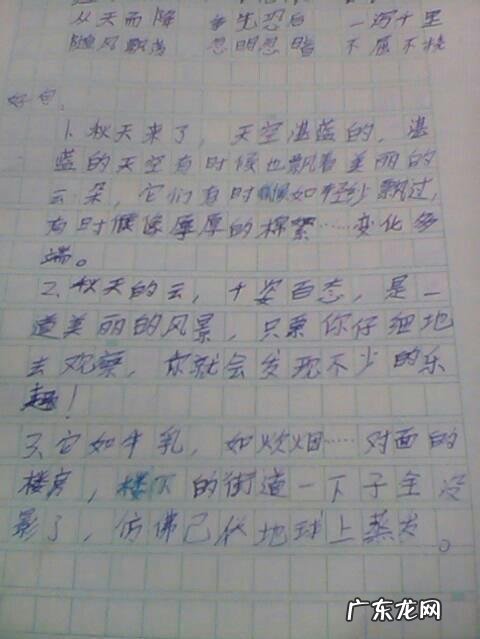 从天而降 争先恐后 一泻千里
随风飘荡 忽明忽暗 不屈不挠
好句:
1、秋天来了，天空湛蓝的，湛
蓝的天空有时候也飘着美丽的
云朵，它们有时候如轻纱飘过，
有时候像厚厚的棉絮……变化多
端。
2、秋天的云，千姿百态，是一
道美丽的风景，只要你仔细地
去观察，你就会发现不少的乐
趣！
3、它如牛乳，如炊烟……对面的
楼房，楼下的街道一下子全没
影了，仿佛已从地球上蒸发。
广东龙网